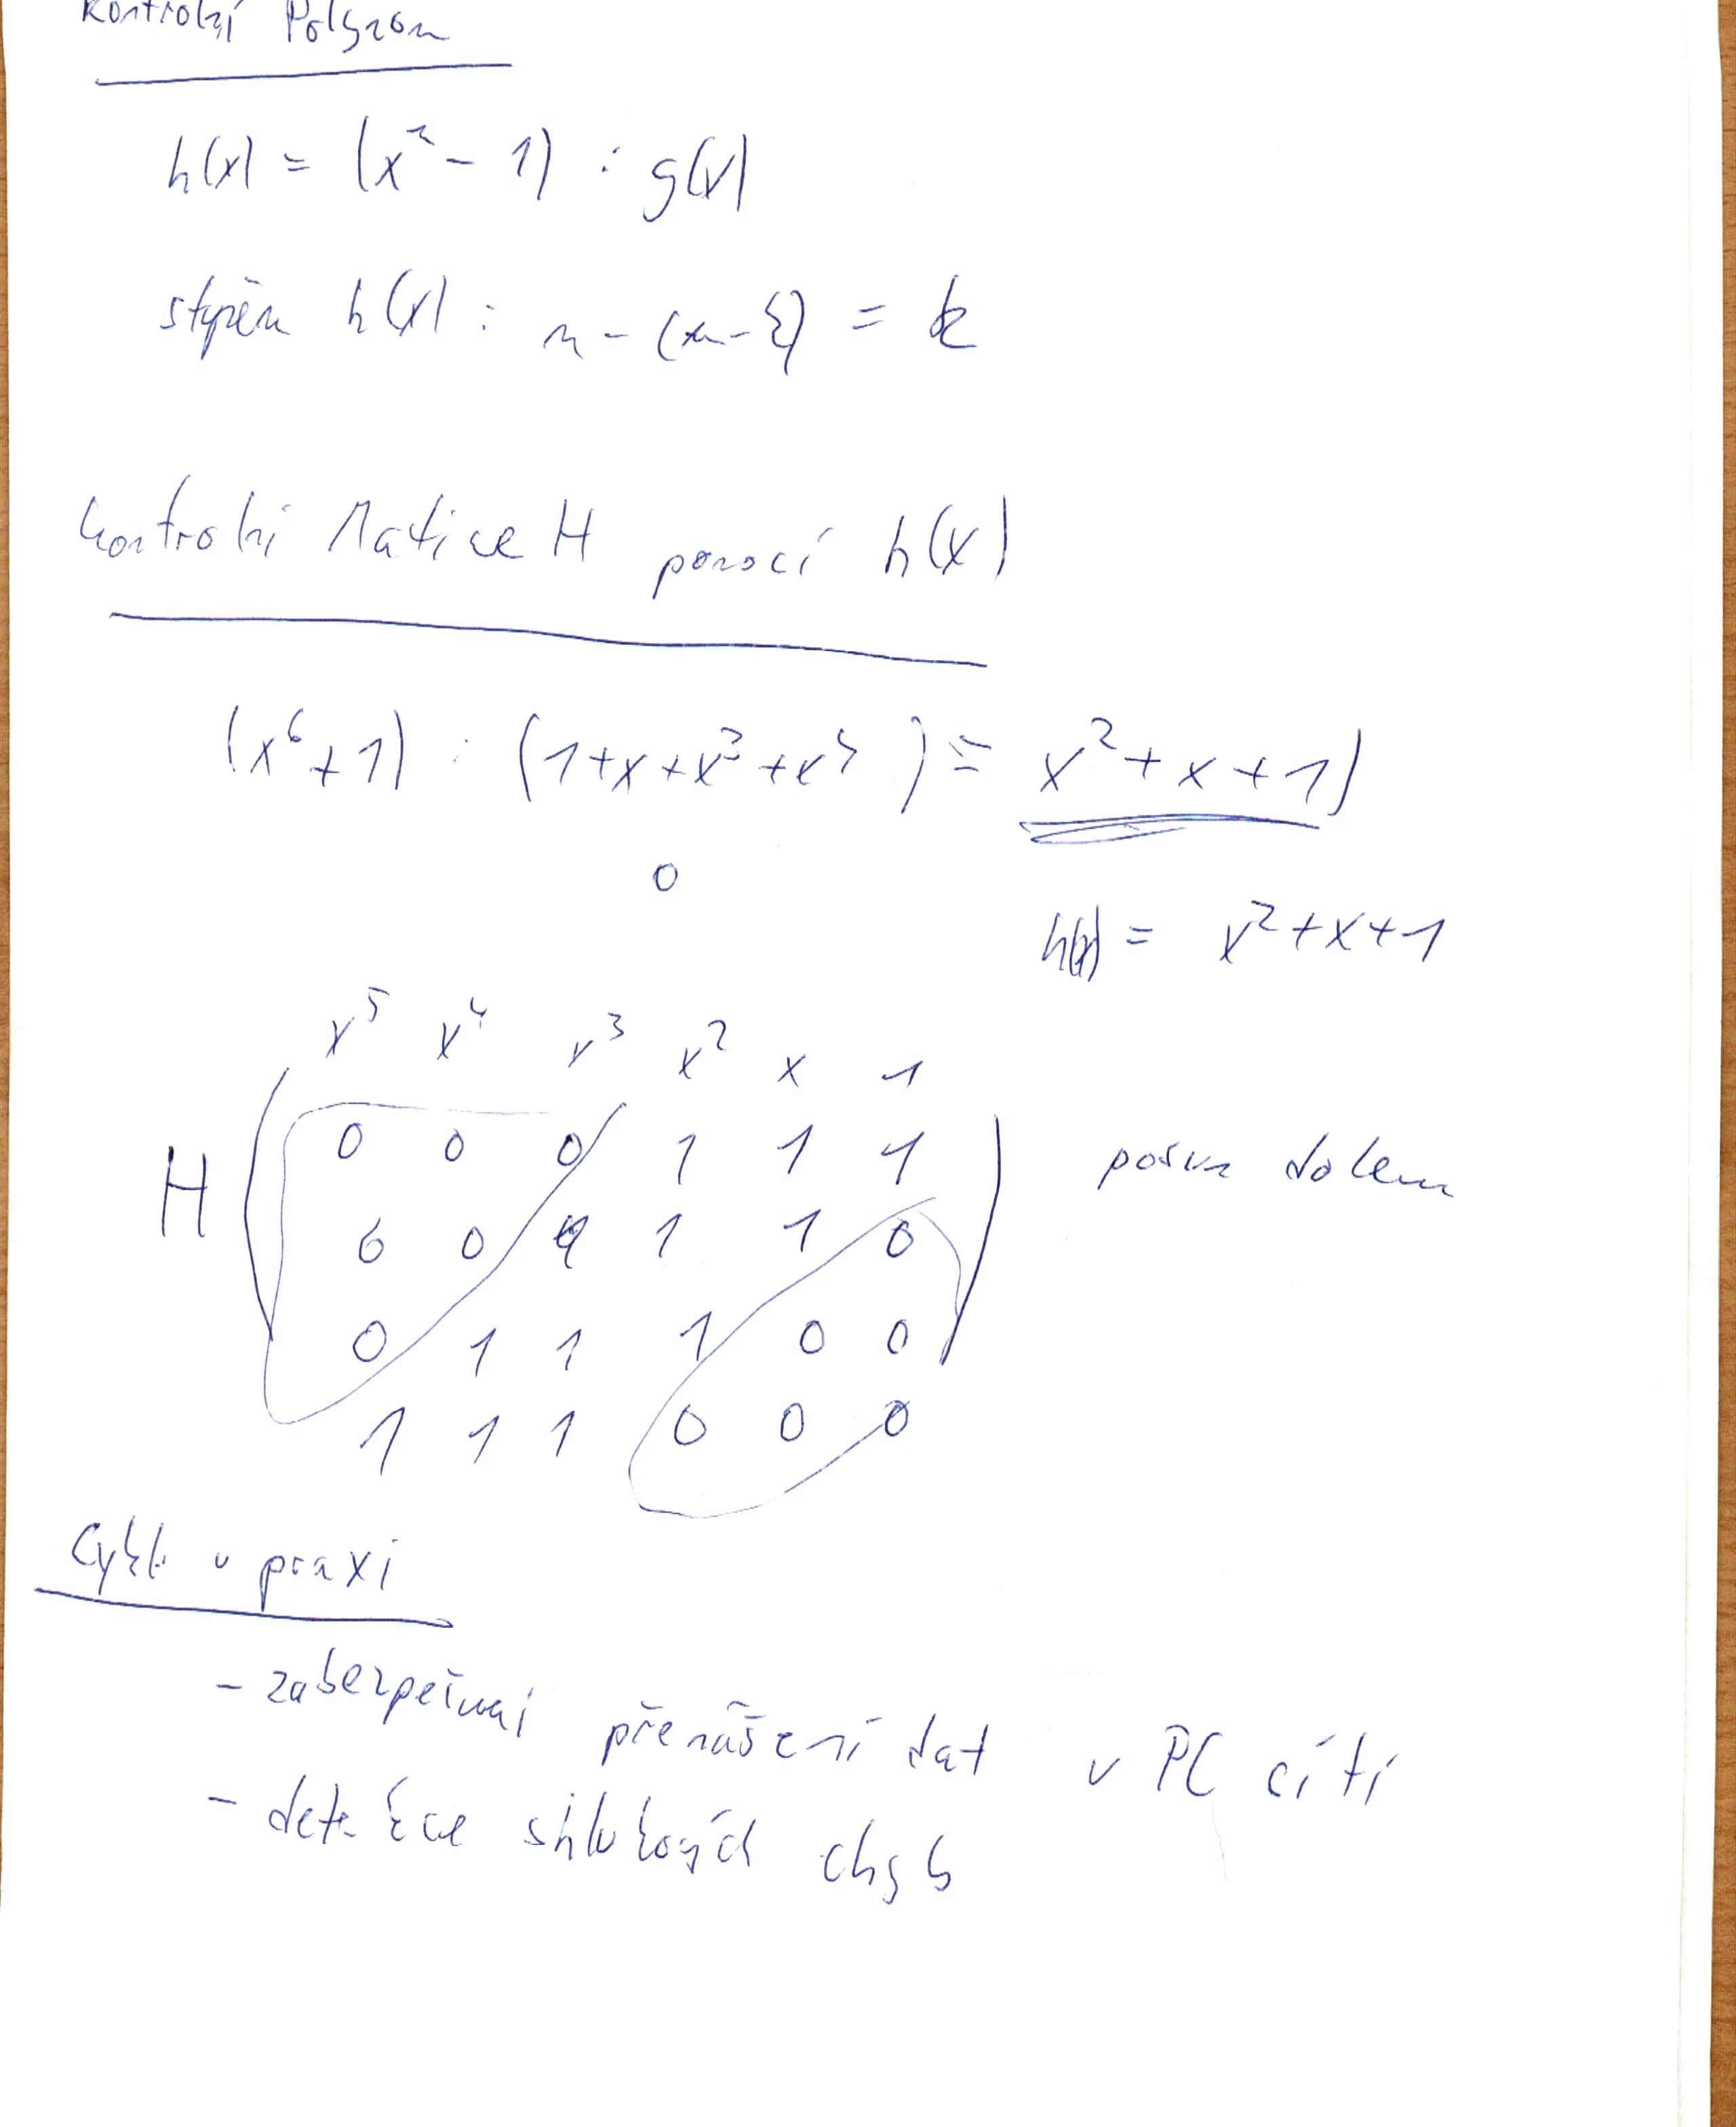 Kontrolní Polynom
h(x) = (xⁿ - 1) : g(x)
stupěn h(x) : n - (n - k) = k
kontrolní Matice H pomocí h(x)
(x⁶ + 1) : (1 + x + x³ + x⁴) = x² + x + 1)
0
h(x) = x² + x + 1
x⁵ x⁴ x³ x² x 1
H ( 0 0 0 1 1 1 )
0 0 1 1 1 0
0 1 1 1 0 0
1 1 1 0 0 0
posun dolem
Cykl. v praxi
- zabezpečnní přenášení dat v PC cítí
- detekce shlukových chyb